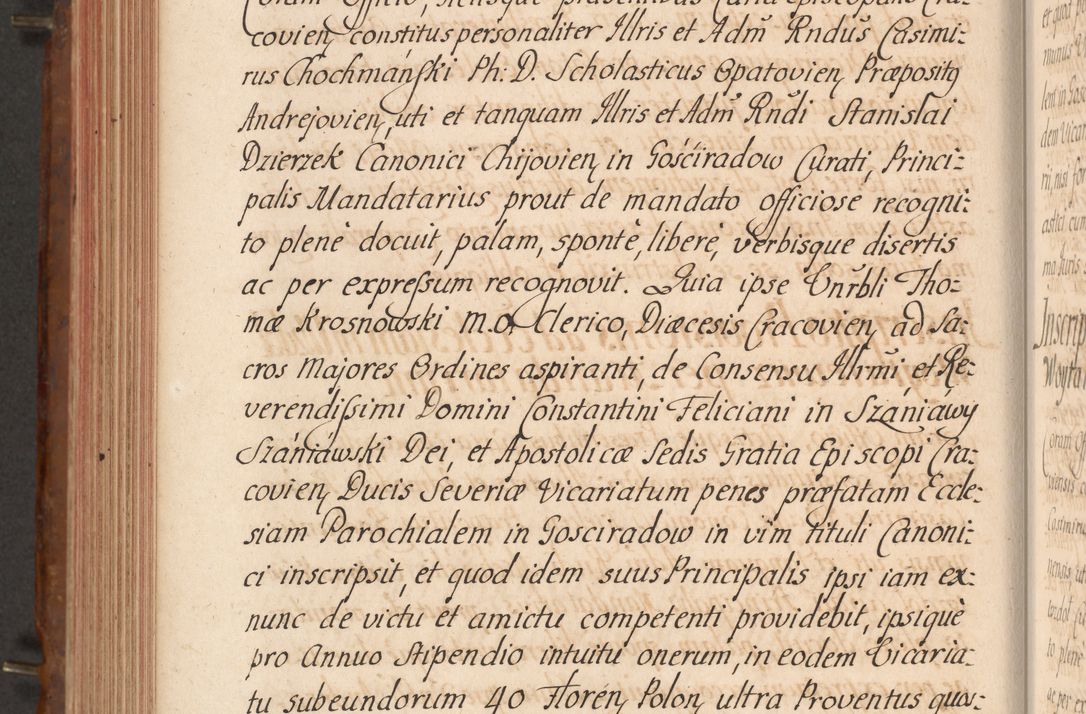 Coram Officio, Actisque præsentibus Curiæ Episcopalis Cra-
covien̄ constitus personaliter Illris et Adm̄ Rndus Casimi:
rus Chochmański Ph: D. Scholasticus Opatovien̄ Præpositȩ
Andrejovien̄, uti et tanquam Illris et Adm̄ Rndi Stanislai
Dzierzek Canonici Chijovien̄ in Gościradow Curati, Princi:
palis Mandatarius prout de mandato officiose recogni:
to plenè docuit, palam, spontè, liberè, verbisque disertis
ac per expressum recognovit. Quia ipse Vnrbli Tho:
mæ Krosnowski M.O. Clerico, Diæcesis Cracovien̄ ad Sa:
cros Majores Ordines aspiranti, de Consensu Illrmi et Re:
verendissimi Domini Constantini Feliciani in Szaniawy
Szaniawski Dei, et Apostolicæ Sedis Gratia Episcopi Cra:
covien̄ Ducis Severiæ Vicariatum penes præfatam Eccle:
siam Parochialem in Gosciradow in vim tituli Canoni:
ci inscripsit, et quod idem suus Principalis ipsi iam ex:
nunc de victu et amictu competenti providebit, ipsique
pro Annuo Stipendio intuitu onerum, in eodem Vicaria:
tu subeundorum 40 Floren̄ Polon̄ ultra Proventus quos: